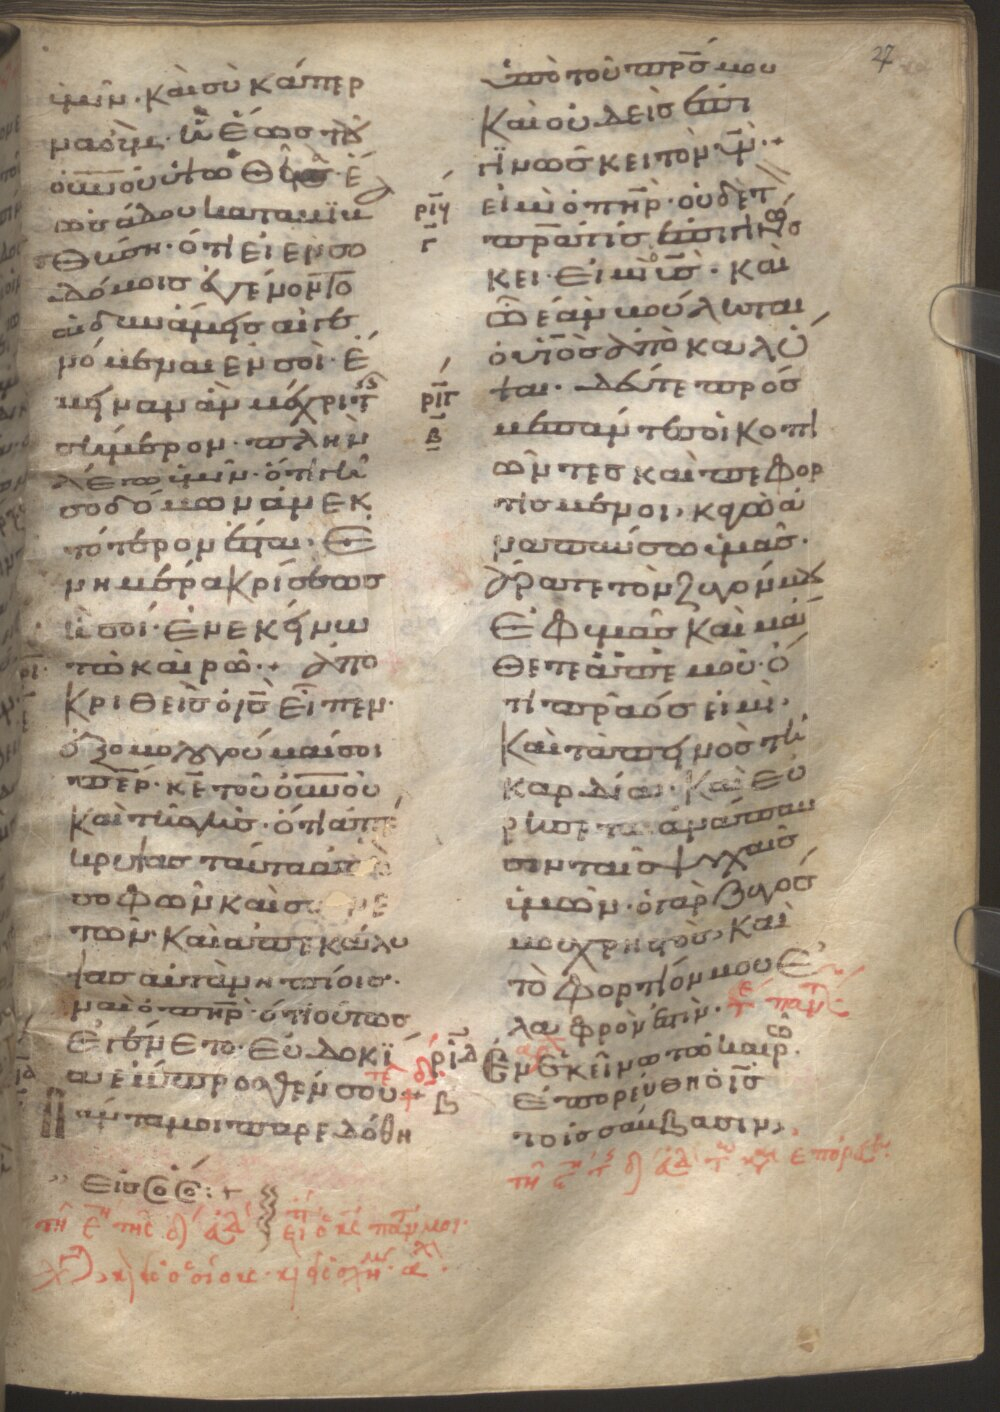 27
ὑμῖν. καὶ σὺ καπερ
ναούμ. ἡ ἕως τοῦ
οὐνοῦ ὑψωθεῖσα. ἕ
ως ἅδου καταβιβα
σθήση. ὅτι εἰ ἐν σο
δόμοις ἐγένοντο
αἱ δυνάμεις αἱ γε
νόμεναι ἐν σοὶ. ἔ
μειναν ἂν μέχρι τῆς
σήμερον. πλὴν
λέγω ὑμῖν. ὅτι γῆ
σοδόμων ἀνεκ
τότερον ἔσται. ἐν
ἡμέρα κρίσεως
ἢ σοί. ἐν ἐκείνω
τῶ καιρῶ. ἀπο
κριθεὶς ὁ ις εἶπεν.
ἐξομολογοῦμαί σοι
περ. κε τοῦ οὐνοῦ
καὶ τῆς γῆς. ὅτι ἀπέ
κρυψας ταῦτα ἀπὸ
σοφῶν καὶ συνε
τῶν. καὶ ἀπεκάλυ
ψας αὐτὰ νηπίοις.
ναὶ ὁ πηρ. ὅτι οὕτως
ἐγένετο εὐδοκί
α ἔμπροσθέν σου
Πάντα μοι παρεδόθη
ριγ
ριδ
β
ὑπὸ τοῦ πρς μου
καὶ οὐδεὶς ἐπι
γινώσκει τὸν υν.
εἰ μὴ ὁ πηρ. οὐδὲ τ
πρα τίς ἐπιγινώσ
κει. εἰ μὴ ὁ υς. καὶ
ὧ ἐὰν βούληται
ὁ υἱὸς ἀποκαλύ
ψαι. δεῦτε πρός
με πάντες οἱ κοπι
ῶντες καὶ πεφορ
τισμένοι. κἀγὼ ἀ
ναπαύσω ὑμᾶς.
ἄρατε τὸν ζυγόν μου
ἐφ ὑμᾶς καὶ μά
θετε ἀπ ἐμοῦ. ὅ
τι πρᾶός εἰμι.
καὶ ταπεινὸς τῆ
καρδία. καὶ εὑ
ρήσετε ἀνάπαυ
σιν ταῖς ψυχαῖς
ὑμῶν. ὁ γὰρ ζυγός
μου χρηστὸς. καὶ
τὸ φορτίον μου ἐ
λαφρόν ἐστιν.
Ἐν ἐκείνω τῶ καιρῶ.
ἐπορεύθη ὁ ις
τοῖς σάββασιν